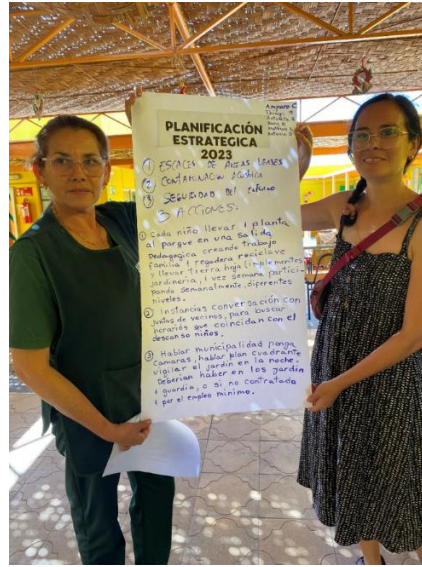 Amparo C
PLANIFICACIÓN
ESTRATEGICA
2023
① ESCACES DE AREAS VERDES
② CONTAMINACION ACUSTICA
③ SEGURIDAD DEL ENTORNO
3 ACCIONES.
① Cada niño llevar 1 planta
al parque en una salida
Pedagogica creando trabajo
familia 1 regadera recicla
y llevar tierra hoja (implementos
jardineria, 1 vez semana partici-
pando semanalmente, diferentes
niveles.
② Instancias conversación con
juntas de vecinos, para buscar
horarios que coincidan con el
descanso niños.
③ Hablar municipalidad ponga
camaras, hablar plan cuadrante
vigilar el jardin en la noche.
Deberian haber en los jardin
1 guardia, o si no contratado
1 por el empleo minimo.